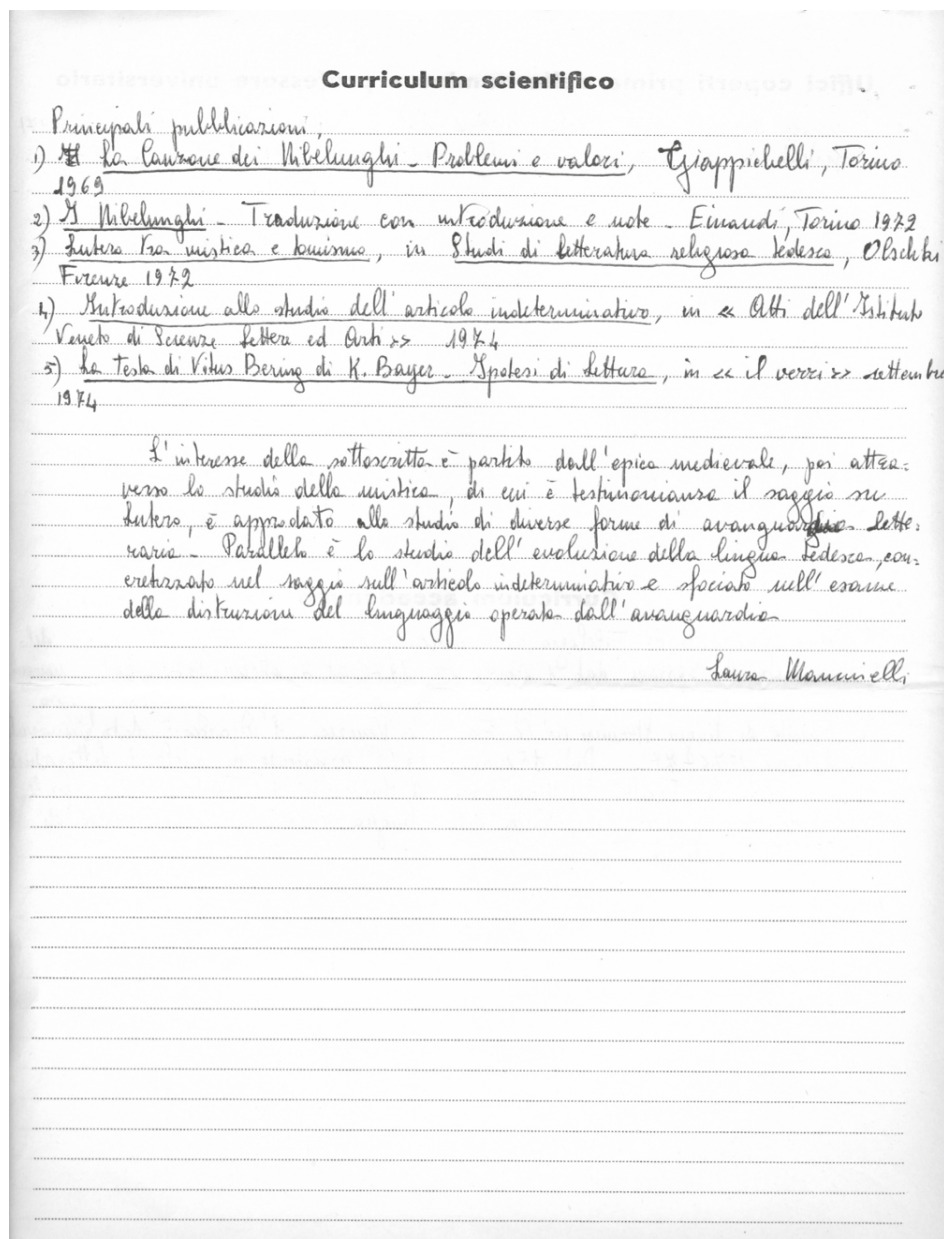 Curriculum scientifico
Principali pubblicazioni,
1) La Canzone dei Nibelunghi - Problemi e valori, Giappichelli, Torino
1969
2) I Nibelunghi - Traduzione con introduzione e note - Einaudi, Torino 1972
3) Lutero tra mistica e tomismo, in Studi di letteratura religiosa tedesca, Olschki
Firenze 1972
4) Introduzione allo studio dell'articolo indeterminativo, in « Atti dell'Istituto
Veneto di Scienze Lettere ed Arti » 1974
5) La Testa di Vitus Bering di K. Bayer - Ipotesi di Lettura, in « il verri » settembre
1974
L'interesse della sottoscritta è partito dall'epica medievale, poi attra=
verso lo studio della mistica, di cui è testimonianza il saggio su
Lutero, è approdato allo studio di diverse forme di avanguardia lette=
raria - Parallelo è lo studio dell'evoluzione della lingua tedesca, con=
cretizzato nel saggio sull'articolo indeterminativo e sfociato nell'esame
della distruzione del linguaggio operata dall'avanguardia
Laura Mancinelli